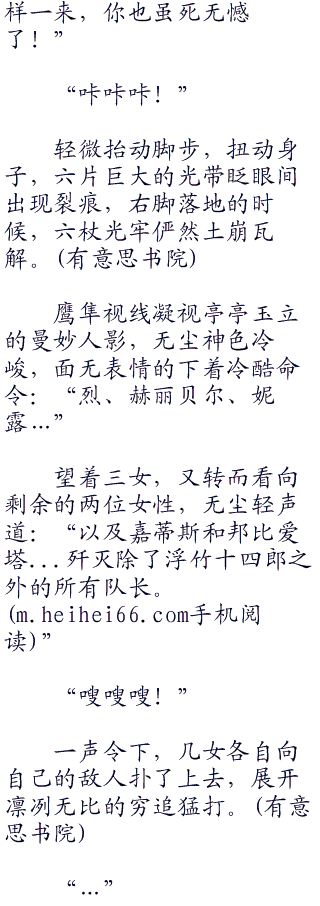 样一来，你也虽死无憾
了！”
“咔咔咔！”
轻微抬动脚步，扭动身
子，六片巨大的光带眨眼间
出现裂痕，右脚落地的时
候，六杖光牢俨然土崩瓦
解。(有意思书院)
鹰隼视线凝视亭亭玉立
的曼妙人影，无尘神色冷
峻，面无表情的下着冷酷命
令：“烈、赫丽贝尔、妮
露…”
望着三女，又转而看向
剩余的两位女性，无尘轻声
道：“以及嘉蒂斯和邦比爱
塔...歼灭除了浮竹十四郎之
外的所有队长。
(m.heihei66.com手机阅
读)”
“嗖嗖嗖！”
一声令下，几女各自向
自己的敌人扑了上去，展开
凛冽无比的穷追猛打。(有意
思书院)
“…”